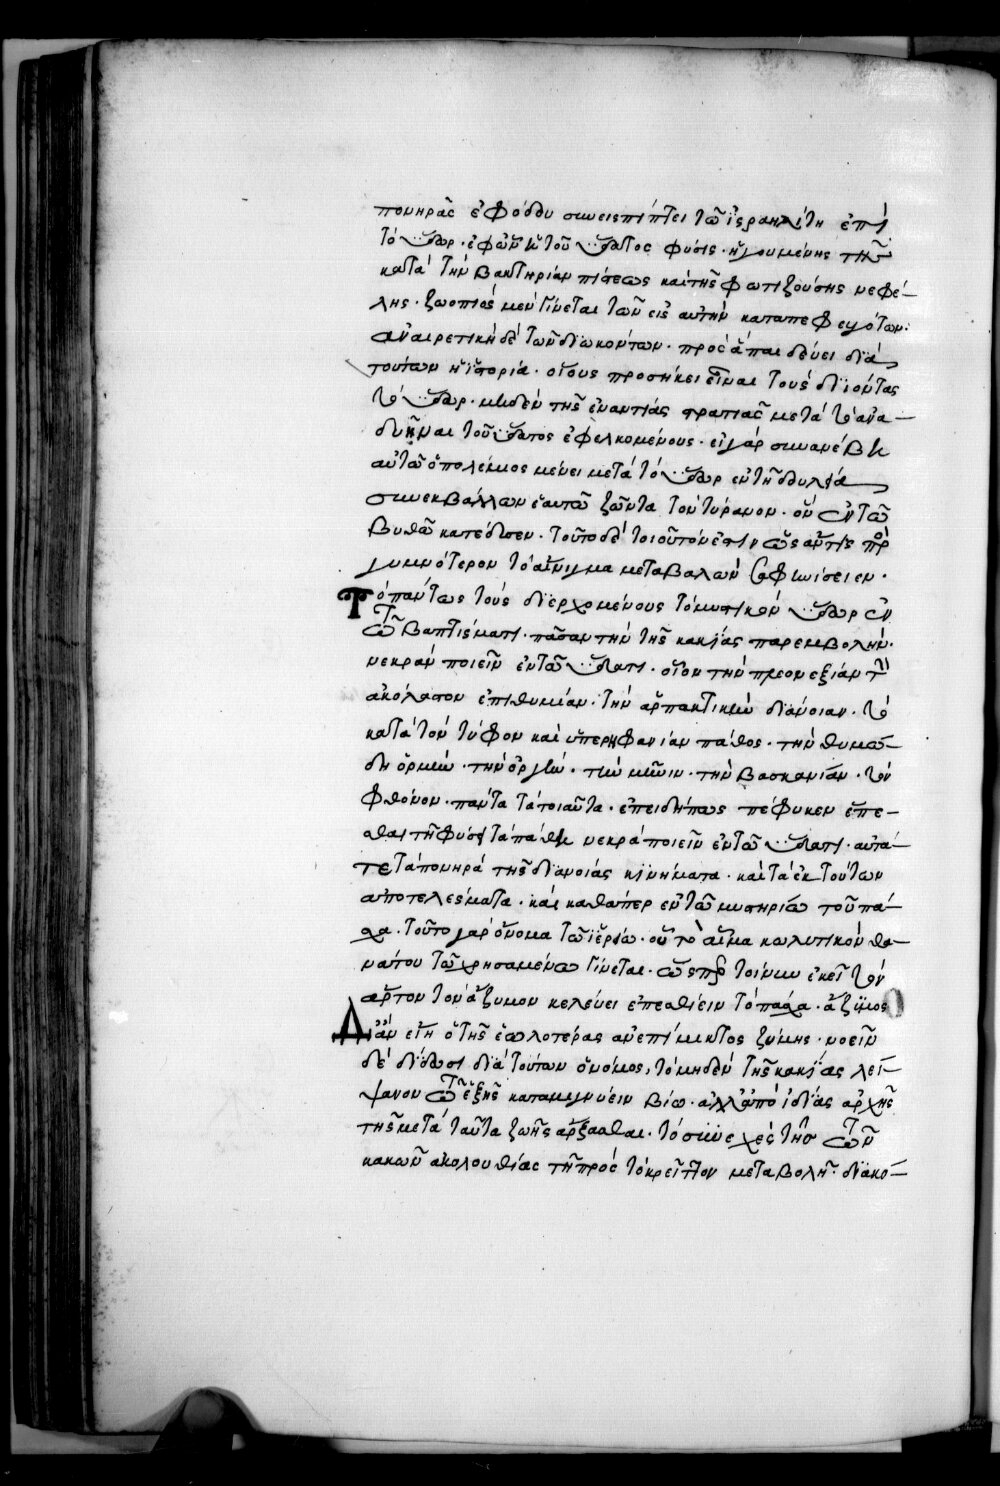 πονηρᾶς ἐφόδου συνεισπίπτει τῶ ἰσραηλίτη ἐπὶ
τὸ ὕδωρ · ἐφ ὧν ἡ τοῦ ὕδατος φύσις · ἡγουμένης τῆς
κατὰ τὴν βακτηρίαν πίστεως καὶ τῆς φωτιζούσης νεφέ-
λης · ζωοποιὸς μὲν γίνεται τῶν εἰς αὐτὴν καταπεφευγότων ·
ἀναιρετικὴ δὲ τῶν διωκόντων · πρὸς ἃ παιδεύει διὰ
τούτων ἡ ἱστορία · οἵους προσήκει εἶναι τοὺς διϊόντας
τὸ ὕδωρ · μηδὲν τῆς ἐναντίας στρατιᾶς μετὰ τὸ ἀνα-
δυῆναι τοῦ ὕδατος ἐφελκομένους · εἰ γὰρ συνανέβη
αὐτῶ ὁ πολέμιος μένει μετὰ τὸ ὕδωρ ἐν τῆ δουλεία
συνεκβάλλων ἑαυτῶ ζῶντα τὸν τύραννον · ὃν ἐν τῶ
βυθῶ κατέδυσεν · τοῦτο δὲ τοιοῦτόν ἐστιν ὡς ἄν τις πρὸς
γυμνότερον τὸ αἴνιγμα μεταβαλὼν σαφηνίσειεν ·
Τὸ πάντως τοὺς διερχομένους τὸ μυστικὸν ὕδωρ ἐν
τῶ βαπτίσματι · πᾶσαν τὴν τῆς κακίας παρεμβολὴν ·
νεκρὰν ποιεῖν ἐν τῶ ὕδατι · οἷον τὴν πλεονεξίαν τὴν
ἀκόλαστον ἐπιθυμίαν · τὴν ἁρπακτικὴν διάνοιαν · τὸ
κατὰ τὸν τύφον καὶ ὑπερηφανίαν πάθος · τὴν θυμώ-
δη ὁρμὴν · τὴν ὀργὴν · τὴν μῆνιν · τὴν βασκανίαν · τὸν
φθόνον · πάντα τὰ τοιαῦτα · ἐπειδή πως πέφυκεν ἕπε-
σθαι τῆ φύσει τὰ πάθη νεκρὰ ποιεῖν ἐν τῶ ὕδατι · αὐτά-
τε τὰ πονηρὰ τῆς διανοίας κινήματα · καὶ τὰ ἐκ τούτων
ἀποτελέσματα · καὶ καθάπερ ἐν τῶ μυστηρίω τοῦ πά-
σχα · τοῦτο γὰρ ὄνομα τῶ ἱερείω · οὗ τὸ αἷμα κωλυτικὸν θα-
νάτου τῶ χρησαμένω γίνεται · ὥσπερ τοίνυν ἐκεῖ τὸν
ἄρτον τὸν ἄζυμον κελεύει ἐπεσθίειν τὸ πάσχα · ἄζυμος
Δ ἂν εἴη ὁ τῆς ἑωλοτέρας ἀνεπίμικτος ζύμης · νοεῖν
δὲ δίδωσι διὰ τούτων ὁ νόμος, τὸ μηδὲν τῆς κακίας λεί-
ψανον τῶ ἑξῆς καταμιγνύειν βίω · ἀλλ ἀπὸ ἰδίας ἀρχῆς
τῆς μετὰ ταῦτα ζωῆς ἄρξασθαι · τὸ συνεχὲς τῆς τῶν
κακῶν ἀκολουθίας τῆ πρὸς τὸ κρεῖττον μεταβολῆ · διακό-